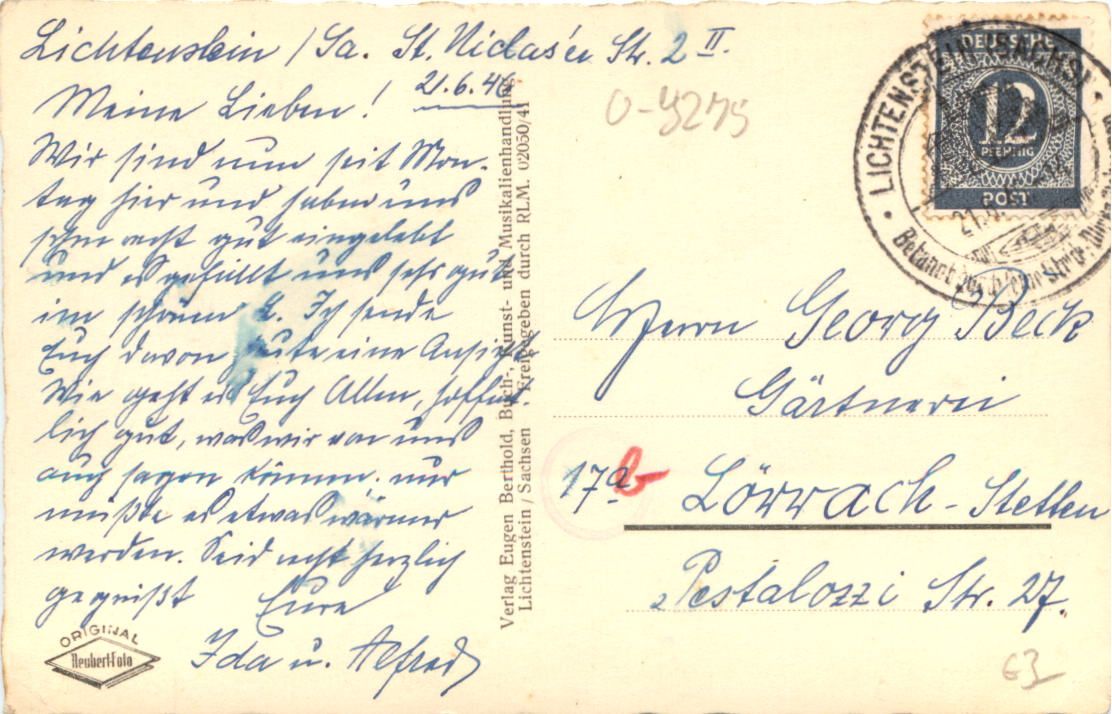 Lichtenstein / Sa. St. Niclas'er Str. 2 II.
21.6.46
Meine Lieben!
Wir sind nun seit Mon-
tag hier und haben uns
schon recht gut eingelebt
und es gefällt uns sehr gut
im schönen L. Ich sende
Euch davon heute eine Ansicht
Wie geht es Euch Allen, hoffent-
lich gut, was wir von uns
auch sagen können. nur
müßte es etwas wärmer
werden. Seid recht herzlich
gegrüßt Eure
Ida u. Alfred
ORIGINAL
Neubert-Foto
Verlag Eugen Berthold, Buch-, Kunst- und Musikalienhandlung,
Lichtenstein / Sachsen Freigegeben durch RLM. 02050/41
0-9275
DEUTSCHE
12
PFENNIG
POST
LICHTENSTEIN (SACHS)
21.6.
Bekannt durch
Herrn Georg Beck
Gärtnerei
17a b Lörrach - Stetten
Pestalozzi Str. 27.
63